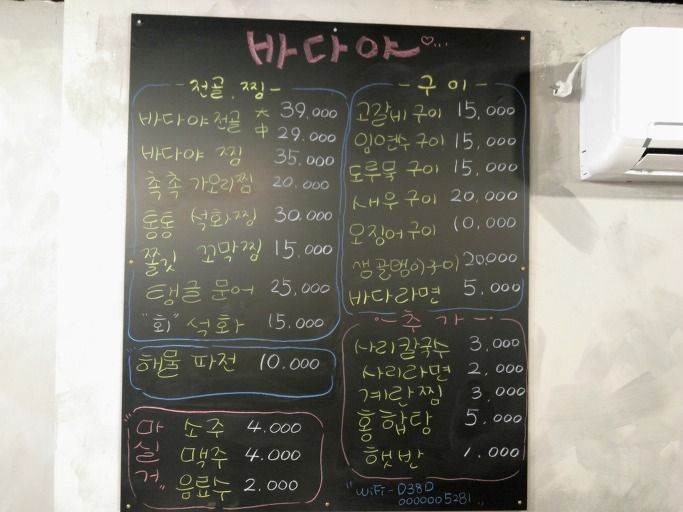 바다야
전골.찜
바다야전골 大 39,000
中 29.000
바다야 찜 35,000
촉촉 가오리찜 20.000
통통 석화찜 30.000
쫄깃 꼬막찜 15.000
탱글 문어 25,000
"회" 석화 15.000
해물 파전 10.000
"마실거"
소주 4.000
맥주 4.000
음료수 2.000
- 구 이 -
고갈비 구이 15,000
임연수 구이 15.000
도루묵 구이 15,000
새우 구이 20.000
오징어 구이 10,000
생골뱅이구이 20,000
바다라면 5.000
추 가
사리칼국수 3.000
사리라면 2.000
계란찜 3,000
홍합탕 5.000
햇반 1.000
"WiFi - D38D
0000005281"